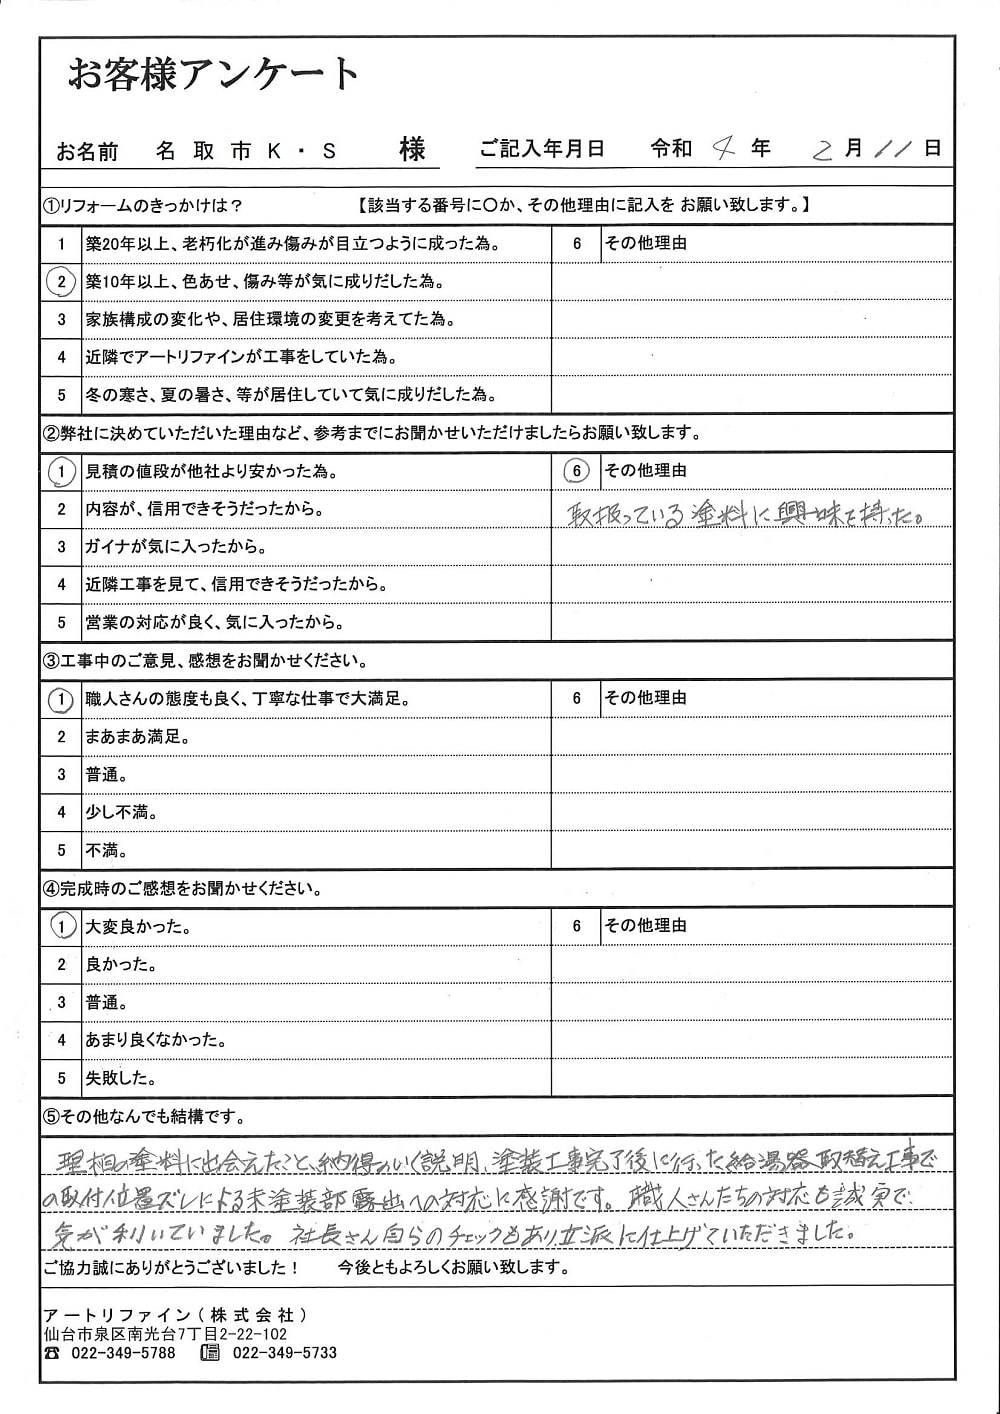 お客様アンケート
お名前 名取市K・S 様 ご記入年月日 令和 4 年 2 月 11 日
①リフォームのきっかけは？ 【該当する番号に〇か、その他理由に記入を お願い致します。】
1 築20年以上、老朽化が進み傷みが目立つように成った為。 6 その他理由
2 築10年以上、色あせ、傷み等が気に成りだした為。
3 家族構成の変化や、居住環境の変更を考えてた為。
4 近隣でアートリファインが工事をしていた為。
5 冬の寒さ、夏の暑さ、等が居住していて気に成りだした為。
②弊社に決めていただいた理由など、参考までにお聞かせいただけましたらお願い致します。
1 見積の値段が他社より安かった為。 6 その他理由
2 内容が、信用できそうだったから。 取扱っている塗料に興味を持った。
3 ガイナが気に入ったから。
4 近隣工事を見て、信用できそうだったから。
5 営業の対応が良く、気に入ったから。
③工事中のご意見、感想をお聞かせください。
1 職人さんの態度も良く、丁寧な仕事で大満足。 6 その他理由
2 まあまあ満足。
3 普通。
4 少し不満。
5 不満。
④完成時のご感想をお聞かせください。
1 大変良かった。 6 その他理由
2 良かった。
3 普通。
4 あまり良くなかった。
5 失敗した。
⑤その他なんでも結構です。
理想の塗料に出会えたこと、納得のいく説明、塗装工事完了後に行った給湯器取替え工事で
の取付位置ズレによる未塗装部露出への対応に感謝です。職人さんたちの対応も誠実で、
気が利いていました。社長さん自らのチェックもあり立派に仕上げていただきました。
ご協力誠にありがとうございました！ 今後ともよろしくお願い致します。
アートリファイン（株式会社）
仙台市泉区南光台7丁目2-22-102
☎ 022-349-5788 022-349-5733